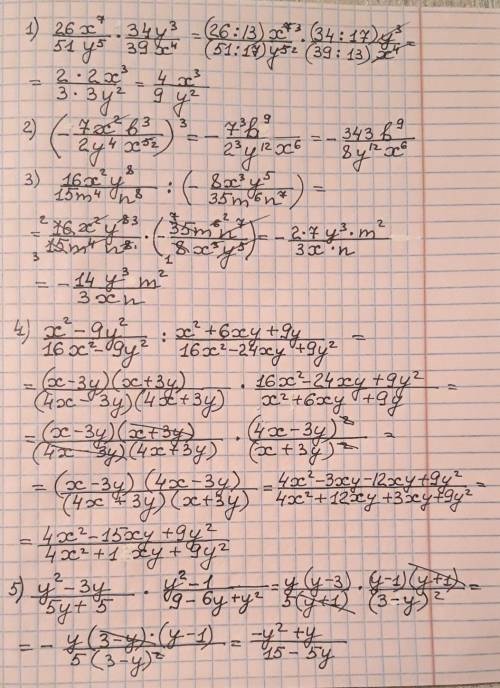 1) 26x⁷/51y⁵ · 34y³/39x⁴ = (26:13)x⁷³ · (34:17)y³/(51:17)y⁵² (39:13)x⁴ =
= 2·2x³/3·3y² = 4x³/9y²
2) (-7x²b³/2y⁴x⁵²)³ = -7³b⁹/2³y¹²x⁶ = -343b⁹/8y¹²x⁶
3) 16x²y⁸/15m⁴n⁸ : (-8x³y⁵/35m⁶n⁷) =
= ²16x²y⁸³/₃15m⁴n⁸· · (-⁷35m⁶²n⁷/₁8x³y⁵) = -2·7y³·m²/3x·n
= -14y³m²/3xn
4) x²-9y²/16x²-9y² : x²+6xy+9y/16x²-24xy+9y² =
= (x-3y)(x+3y)/(4x-3y)(4x+3y) · 16x²-24xy+9y²/x²+6xy+9y =
= (x-3y)(x+3y)/(4x-3y)(4x+3y) · (4x-3y)²/(x+3y)² =
= (x-3y)(4x-3y)/(4x+3y)(x+3y) = 4x²-3xy-12xy+9y²/4x²+12xy+3xy+9y² =
= 4x²-15xy+9y²/4x²+1 xy+9y²
5) y²-3y/5y+5 · y²-1/9-6y+y² = y(y-3)/5(y+1) · (y-1)(y+1)/(3-y)² =
= -y(3-y)·(y-1)/5(3-y)² = -y²+y/15-5y